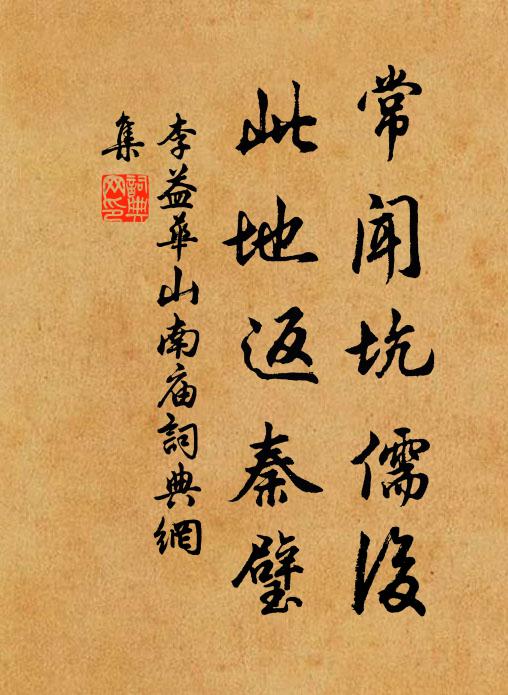 常闻坑儒後
此地返秦璧
李益華山南庙詞典網
集
詞典网印